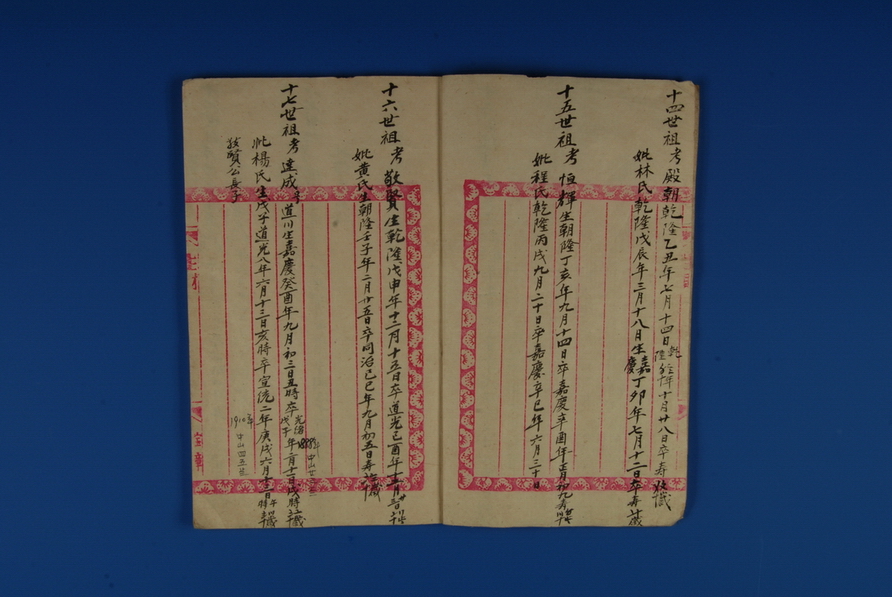 十四世祖考殿朝乾隆乙丑年七月十四日乾隆年十月廿八日卒寿歲
妣林氏乾隆戊辰年三月十八月生嘉慶丁卯年七月十二日卒寿歲
十五世祖考恒輝生朝隆丁亥年九月十四日卒嘉慶辛酉年正月初九
妣程氏乾隆丙戌九月二十日卒嘉慶辛巳年六月三十日
十六世祖考敬賢生乾隆戊申年十二月十五日卒道光己酉年
妣黄氏生朝隆壬子年二月廿五日卒同治己巳年九月初五日寿歲
十七世祖考達成号道川生嘉慶癸酉年九月初三日丑時卒光緒戊子年二月十二日戌時歲
妣楊氏生戊子道光八年六月十三日亥時卒宣統二年庚戌六月十三日午時歲
敬賢公長子
1910年